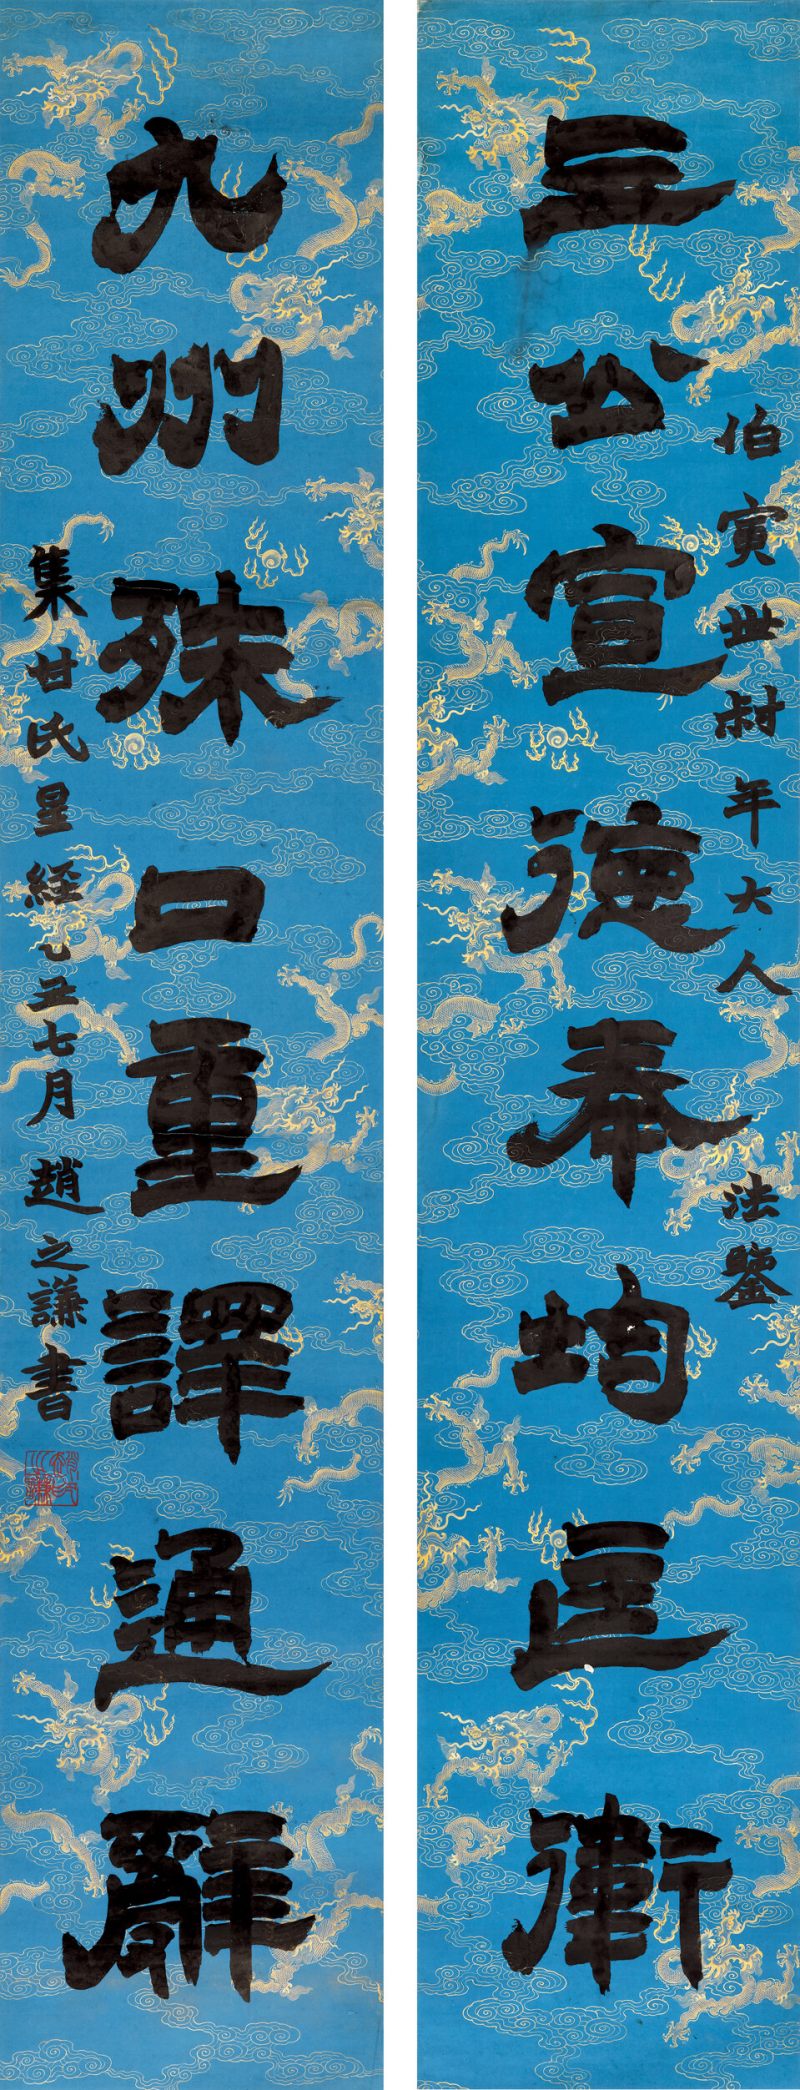 三公宣德奉均匡衛
伯寅世叔年大人 法鑒
九州殊口重譯通辭
集甘氏星經乙丑七月 趙之謙書